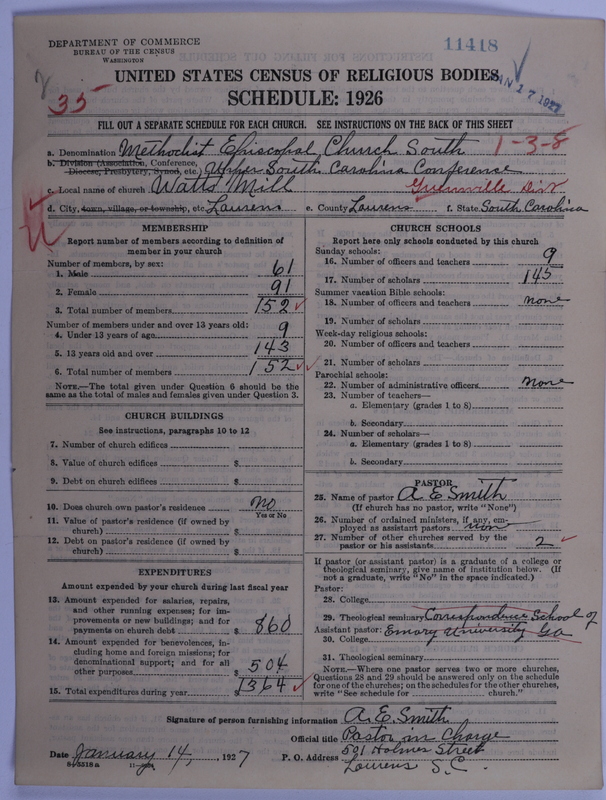 DEPARTMENT OF COMMERCE
BUREAU OF THE CENSUS
WASHINGTON
11418
JAN 17 1927
35
UNITED STATES CENSUS OF RELIGIOUS BODIES
SCHEDULE: 1926
FILL OUT A SEPARATE SCHEDULE FOR EACH CHURCH. SEE INSTRUCTIONS ON THE BACK OF THIS SHEET
a. Denomination Methodist Episcopal Church South 1-3-8
b. Division (Association, Conference, Diocese, Presbytery, Synod, etc.) Upper South Carolina Conference
c. Local name of church Watts Mill Greenville Dist
d. City, town, village, or township, etc. Laurens e. County Laurens f. State South Carolina
MEMBERSHIP
Report number of members according to definition of
member in your church
Number of members, by sex:
1. Male 61
2. Female 91
3. Total number of members 152
Number of members under and over 13 years old:
4. Under 13 years of age 9
5. 13 years old and over 143
6. Total number of members 152
NOTE.—The total given under Question 6 should be the
same as the total of males and females given under Question 3.
CHURCH BUILDINGS
See instructions, paragraphs 10 to 12
7. Number of church edifices
8. Value of church edifices $
9. Debt on church edifices $
10. Does church own pastor's residence no
Yes or No
11. Value of pastor's residence (if owned by
church) $
12. Debt on pastor's residence (if owned by
church) $
EXPENDITURES
Amount expended by your church during last fiscal year
13. Amount expended for salaries, repairs,
and other running expenses; for im-
provements or new buildings; and for
payments on church debt $ 860
14. Amount expended for benevolences, in-
cluding home and foreign missions; for
denominational support; and for all
other purposes $ 504
15. Total expenditures during year $ 1364
CHURCH SCHOOLS
Report here only schools conducted by this church
Sunday schools:
16. Number of officers and teachers 9
17. Number of scholars 145
Summer vacation Bible schools:
18. Number of officers and teachers none
19. Number of scholars
Week-day religious schools:
20. Number of officers and teachers
21. Number of scholars
Parochial schools:
22. Number of administrative officers none
23. Number of teachers—
a. Elementary (grades 1 to 8)
b. Secondary
24. Number of scholars—
a. Elementary (grades 1 to 8)
b. Secondary
PASTOR
25. Name of pastor A E Smith
(If church has no pastor, write "None")
26. Number of ordained ministers, if any, em-
ployed as assistant pastors none
27. Number of other churches served by the
pastor or his assistants 2
If pastor (or assistant pastor) is a graduate of a college or
theological seminary, give name of institution below. (If
not a graduate, write "No" in the space indicated.)
Pastor:
28. College
29. Theological seminary Correspondence School of
Assistant pastor: Emory University Ga
30. College
31. Theological seminary
NOTE.—Where one pastor serves two or more churches,
Questions 28 and 29 should be answered only on the schedule
for one of the churches; on the schedules for the other churches,
write "See schedule for church."
Signature of person furnishing information A. E. Smith
Official title Pastor in Charge
Date January 14, 1927 P. O. Address 501 Holmes Street
Laurens S.C.